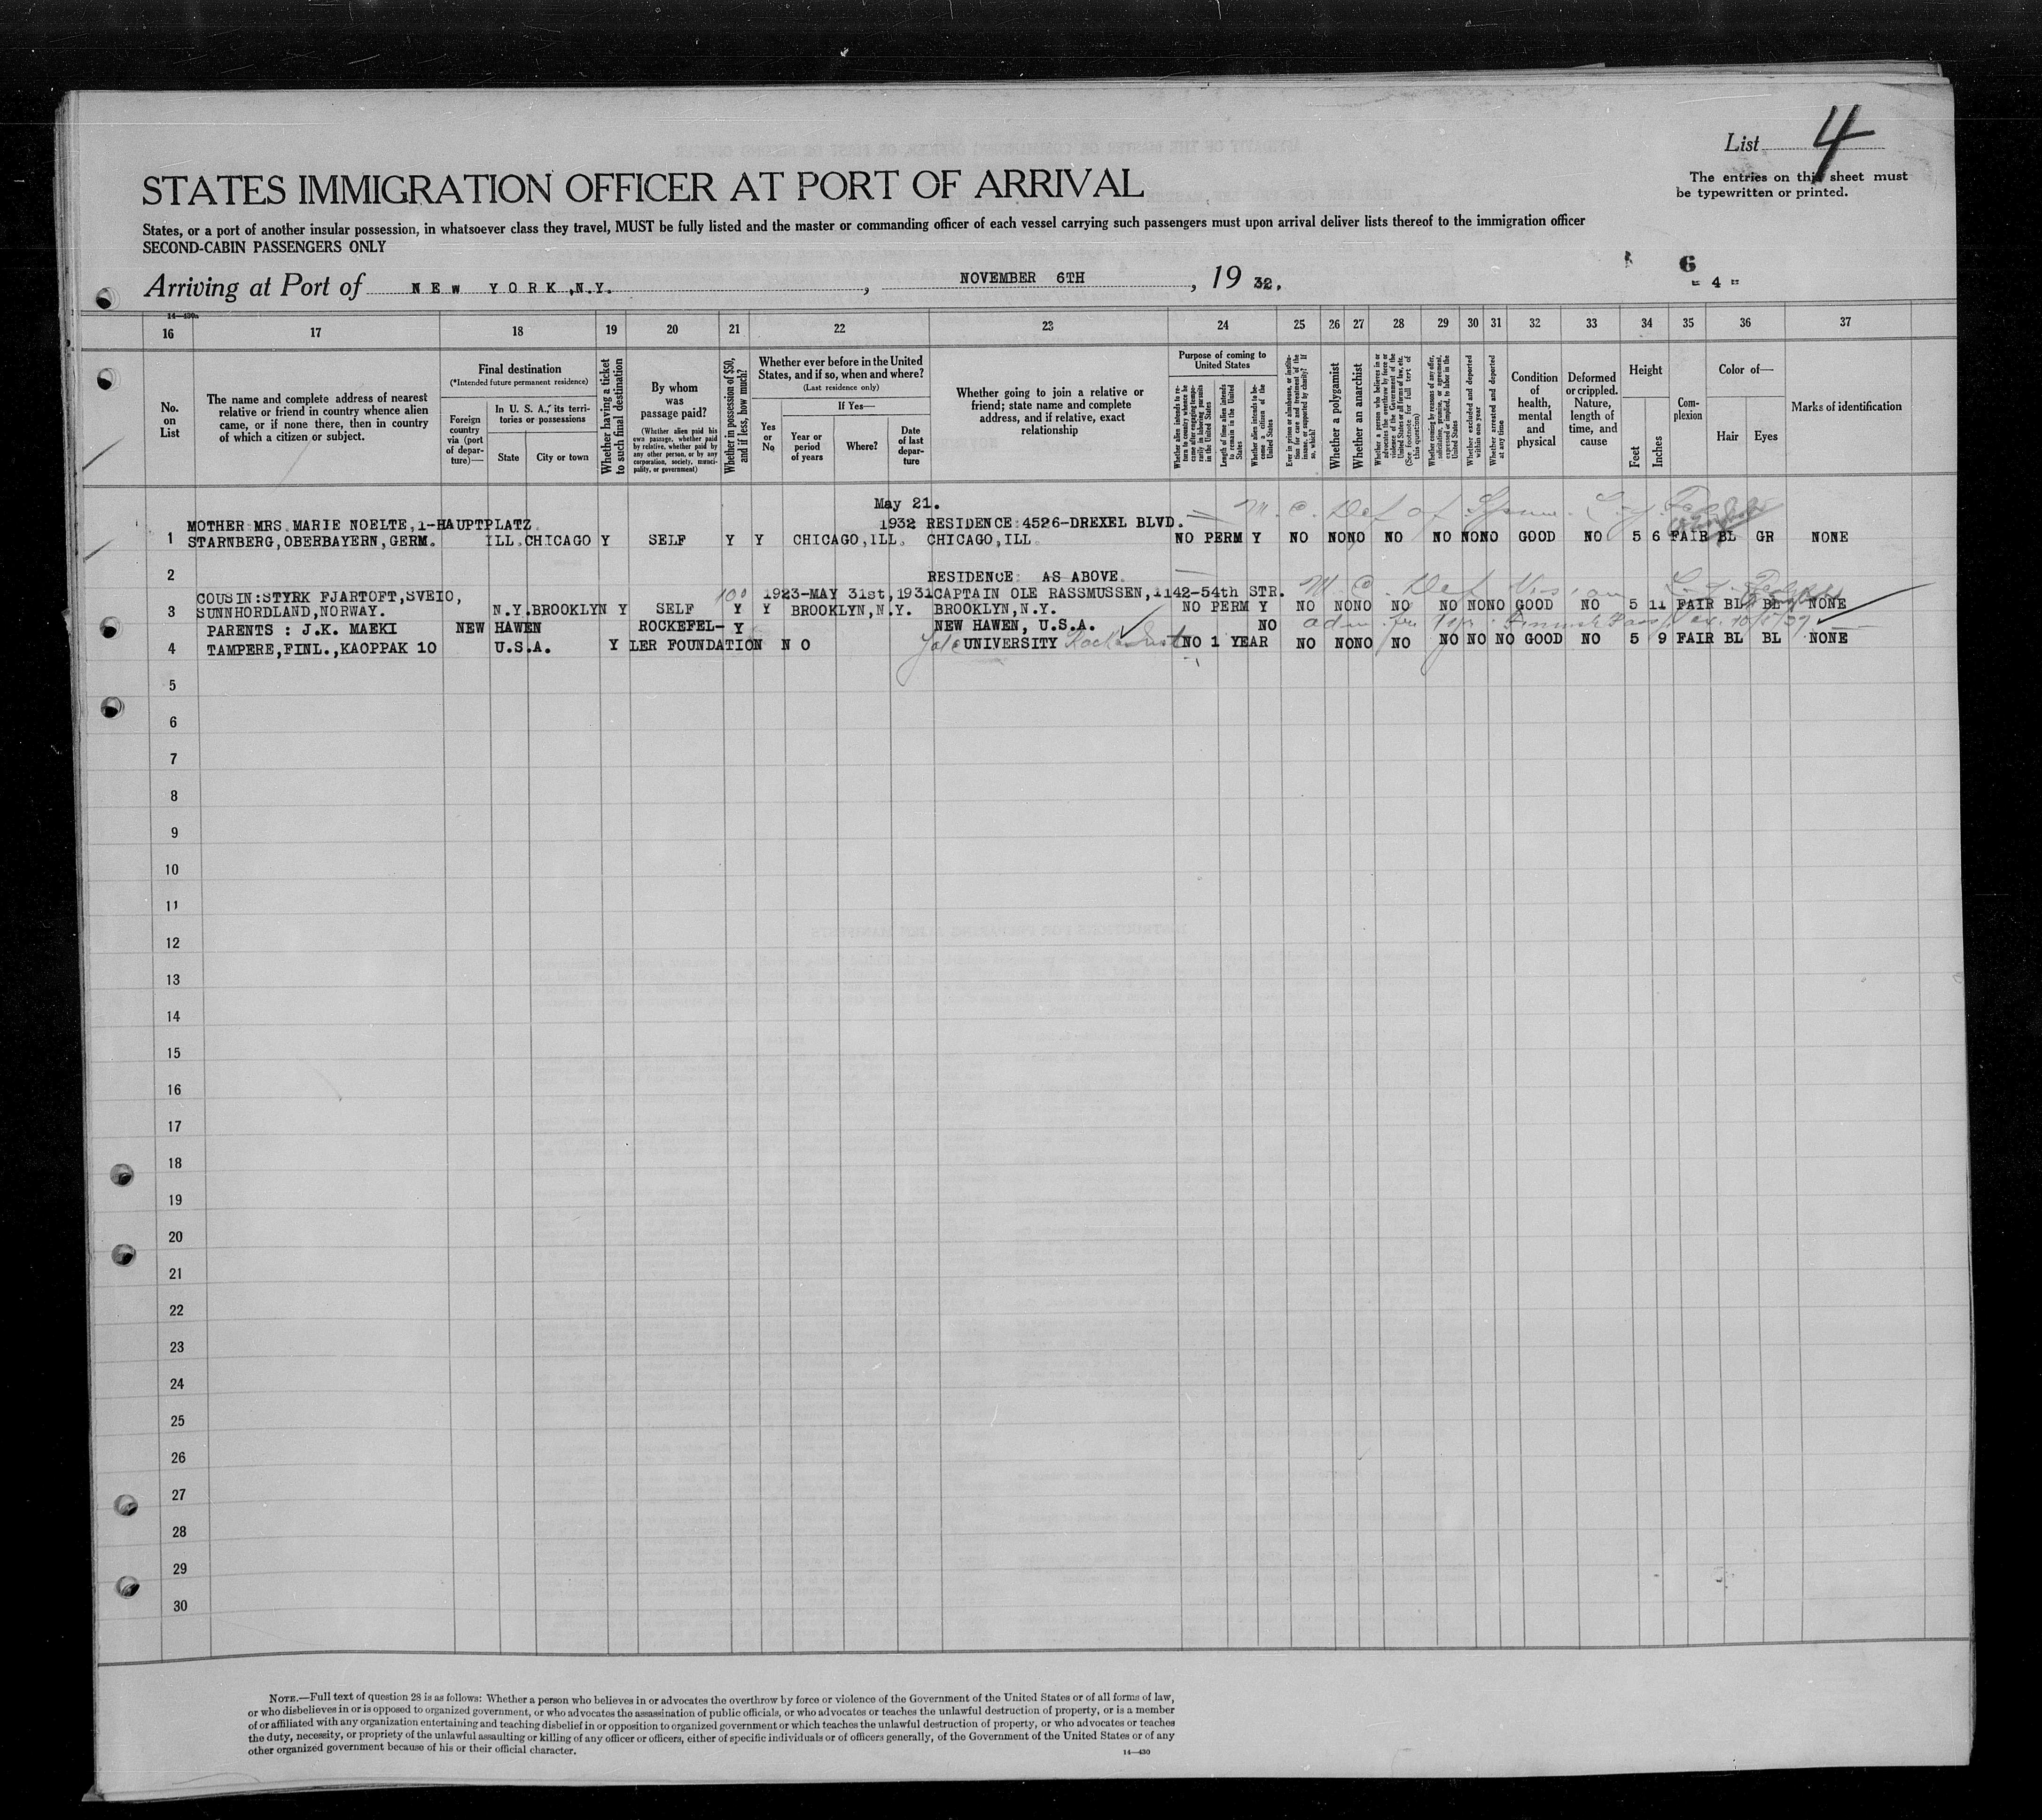 List 4
The entries on this sheet must
be typewritten or printed.
STATES IMMIGRATION OFFICER AT PORT OF ARRIVAL
States, or a port of another insular possession, in whatsoever class they travel, MUST be fully listed and the master or commanding officer of each vessel carrying such passengers must upon arrival deliver lists thereof to the immigration officer
SECOND-CABIN PASSENGERS ONLY
6
Arriving at Port of NEW YORK,N.Y. , NOVEMBER 6TH , 19 32.
" 4 "
14—430a
16 17 18 19 20 21 22 23 24 25 26 27 28 29 30 31 32 33 34 35 36 37
No.
on
List
The name and complete address of nearest
relative or friend in country whence alien
came, or if none there, then in country
of which a citizen or subject.
Final destination
(*Intended future permanent residence)
Foreign
country
via (port
of depar-
ture)—
In U. S. A., its terri-
tories or possessions
State
City or town
Whether having a ticket
to such final destination
By whom
was
passage paid?
(Whether alien paid his
own passage, whether paid
by relative, whether paid by
any other person, or by any
corporation, society, munici-
pality, or government)
Whether in possession of $50,
and if less, how much?
Whether ever before in the United
States, and if so, when and where?
(Last residence only)
Yes
or
No
If Yes—
Year or
period
of years
Where?
Date
of last
depar-
ture
Whether going to join a relative or
friend; state name and complete
address, and if relative, exact
relationship
Purpose of coming to
United States
Whether alien intends to re-
turn to country whence he
came after engaging tempo-
rarily in laboring pursuits
in the United States
Length of time alien intends
to remain in the United
States
Whether alien intends to be-
come a citizen of the
United States
Ever in prison or almshouse, or institu-
tion for care and treatment of the
insane, or supported by charity? If
so, which?
Whether a polygamist
Whether an anarchist
Whether a person who believes in or
advocates the overthrow by force or
violence of the Government of the
United States or all forms of law, etc.
(See footnote for full text of
this question)
Whether coming by reason of any offer,
solicitation, promise, or agreement,
expressed or implied, to labor in the
United States
Whether excluded and deported
within one year
Whether arrested and deported
at any time
Condition
of
health,
mental
and
physical
Deformed
or crippled.
Nature,
length of
time, and
cause
Height
Feet
Inches
Com-
plexion
Color of—
Hair
Eyes
Marks of identification
May 21.
MOTHER MRS. MARIE NOELTE,1-HAUPTPLATZ 1932 RESIDENCE:4526-DREXEL BLVD.
1 STARNBERG,OBERBAYERN,GERM. ILL.CHICAGO Y SELF Y Y CHICAGO,ILL. CHICAGO,ILL NO PERM Y NO NONO NO NO NONO GOOD NO 5 6 FAIR BL GR NONE
2 RESIDENCE: AS ABOVE.
COUSIN:STYRK FJARTOFT,SVEIO, 100 1923-MAY 31st,1931CAPTAIN OLE RASSMUSSEN,1142-54th STR.
3 SUNNHORDLAND,NORWAY. N.Y.BROOKLYN Y SELF Y Y BROOKLYN,N.Y. BROOKLYN,N.Y. NO PERM Y NO NONO NO NO NONO GOOD NO 5 11 FAIR BL BL NONE
PARENTS : J.K. MAEKI NEW HAWEN ROCKEFEL- Y NEW HAWEN, U.S.A. NO
4 TAMPERE,FINL.,KAOPPAK 10 U.S.A. Y LER FOUNDATION N O Yale UNIVERSITY NO 1 YEAR NO NONO NO NO NO NO GOOD NO 5 9 FAIR BL BL NONE
5
6
7
8
9
10
11
12
13
14
15
16
17
18
19
20
21
22
23
24
25
26
27
28
29
30
NOTE.—Full text of question 28 is as follows: Whether a person who believes in or advocates the overthrow by force or violence of the Government of the United States or of all forms of law,
or who disbelieves in or is opposed to organized government, or who advocates the assassination of public officials, or who advocates or teaches the unlawful destruction of property, or is a member
of or affiliated with any organization entertaining and teaching disbelief in or opposition to organized government or which teaches the unlawful destruction of property, or who advocates or teaches
the duty, necessity, or propriety of the unlawful assaulting or killing of any officer or officers, either of specific individuals or of officers generally, of the Government of the United States or of any
other organized government because of his or their official character.
14—430